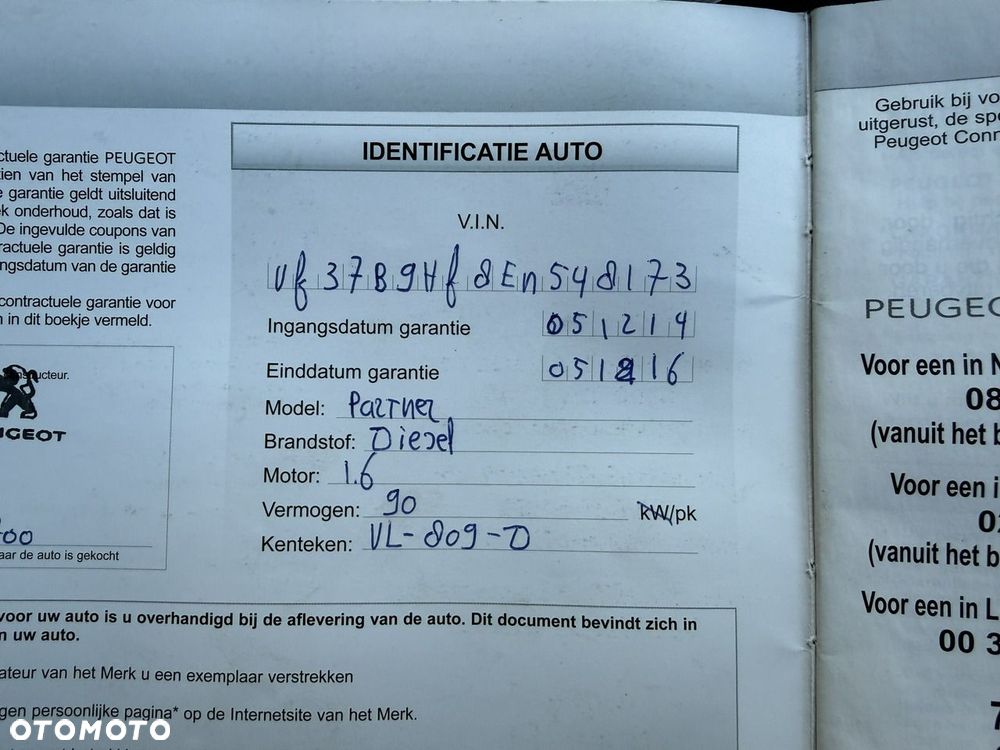 ctuele garantie PEUGEOT
ien van het stempel van
e garantie geldt uitsluitend
k onderhoud, zoals dat is
De ingevulde coupons van
ractuele garantie is geldig
ngsdatum van de garantie
contractuele garantie voor
n in dit boekje vermeld.
nstructeur.
UGEOT
00
aar de auto is gekocht
IDENTIFICATIE AUTO
V.I.N.
Vf37B9Hf8En548173
Ingangsdatum garantie 051214
Einddatum garantie 051216
Model: Partner
Brandstof: Diesel
Motor: 1.6
Vermogen: 90 kW/pk
Kenteken: VL-809-D
voor uw auto is u overhandigd bij de aflevering van de auto. Dit document bevindt zich in
n uw auto.
ateur van het Merk u een exemplaar verstrekken
gen persoonlijke pagina* op de Internetsite van het Merk.
Gebruik bij vo
uitgerust, de spe
Peugeot Conn
PEUGEO
Voor een in N
08
(vanuit het b
Voor een i
02
(vanuit het b
Voor een in L
00 3
7
OTOMOTO